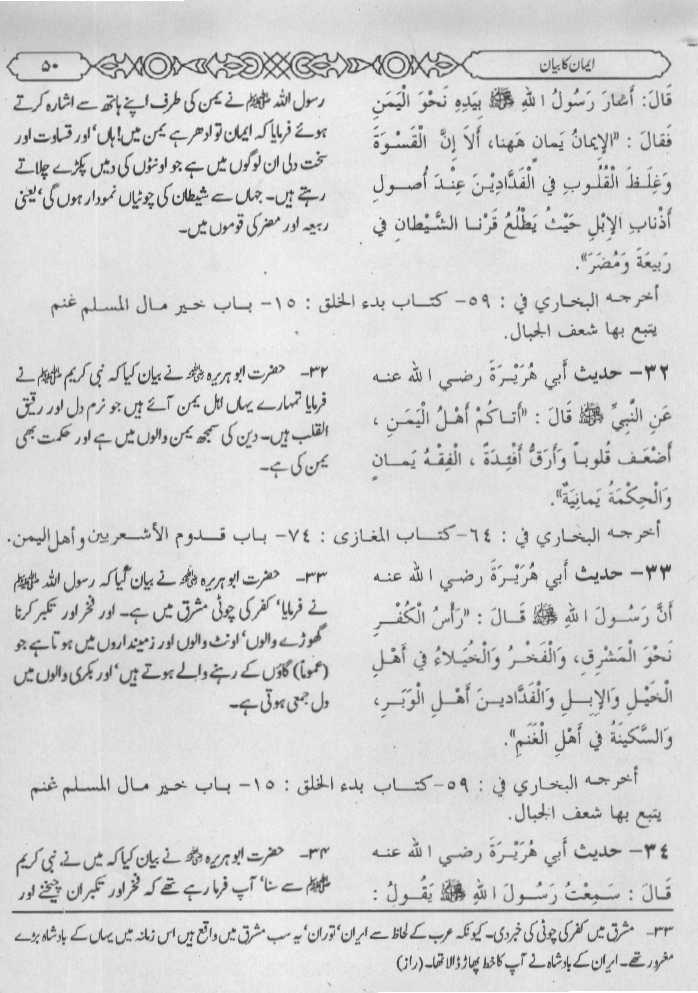 ایمان کا بیان
۵۰
قَالَ: أَشَارَ رَسُولُ اللهِ ﷺ بِيَدِهِ نَحْوَ الْيَمَنِ
فَقَالَ: «الإِيمَانُ يَمَانٍ هَهنا، أَلاَ إِنَّ الْقَسْوَةَ
وَغِلَظَ الْقُلُوبِ فِي الْفَدَّادِينَ عِنْدَ أُصُولِ
أَذْنَابِ الإِبْلِ حَيْثُ يَطْلُعُ قَرْنا الشَّيْطَانِ في
رَبِيعَةَ وَمُضَرَ».
رسول اللہ ﷺ نے یمن کی طرف اپنے ہاتھ سے اشارہ کرتے
ہوئے فرمایا کہ ایمان تو ادھر ہے یمن میں! ہاں‘ اور قساوت اور
سخت دلی ان لوگوں میں ہے جو اونٹوں کی دمیں پکڑے چلاتے
رہتے ہیں۔ جہاں سے شیطان کی چوٹیاں نمودار ہوں گی‘ یعنی
ربیعہ اور مضر کی قوموں میں۔
أخرجه البخاري في : ٥٩- كتاب بدء الخلق : ١٥- باب خير مال المسلم غنم
يتبع بها شعف الجبال.
٣٢- حديث أَبي هُرَيْرَةَ رضي الله عنه
عَنِ النَّبِيِّ ﷺ قَالَ : «أَتاكُمْ أَهْلُ الْيَمَنِ ،
أَضْعَف قُلوباً وَأَرَقُّ أَفْئِدَةً ، الْفِقْهُ يَمَانٍ
وَالْحِكْمَةُ يَمَانِيَةٌ».
۳۲- حضرت ابو ہریرہ رضی اللہ عنہ نے بیان کیا کہ نبی کریم ﷺ نے
فرمایا تمہارے یہاں اہل یمن آئے ہیں جو نرم دل اور رقیق
القلب ہیں۔ دین کی سمجھ یمن والوں میں ہے اور حکمت بھی
یمن کی ہے۔
أخرجه البخاري في : ٦٤- كتاب المغازى : ٧٤- باب قدوم الأشعريين وأهل اليمن.
٣٣- حديث أَبي هُرَيْرَةَ رضي الله عنه
أَنَّ رَسُولَ اللهِ ﷺ قَالَ : «رَأْسُ الْكُفْرِ
نَحْوَ الْمَشْرِقِ، وَالْفَخْرُ وَالْخُيَلاءُ فِي أَهْلِ
الْخَيْلِ وَالإِبِلِ وَالْفَدَّادِينَ أَهْلِ الْوَبَرِ،
وَالسَّكِينَةُ فِي أَهْلِ الْغَنَمِ».
۳۳- حضرت ابو ہریرہ رضی اللہ عنہ نے بیان کیا کہ رسول اللہ ﷺ
نے فرمایا‘ کفر کی چوٹی مشرق میں ہے۔ اور فخر اور تکبر کرنا
گھوڑے والوں‘ اونٹ والوں اور زمینداروں میں ہوتا ہے جو
(عموماً) گاؤں کے رہنے والے ہوتے ہیں‘ اور بکری والوں میں
دل جمعی ہوتی ہے۔
أخرجه البخاري في : ٥٩- كتاب بدء الخلق : ١٥- باب خير مال المسلم غنم
يتبع بها شعف الجبال.
٣٤- حديث أَبي هُرَيْرَةَ رضي الله عنه
قَالَ : سَمِعْتُ رَسُولَ اللهِ ﷺ يَقُولُ :
۳۴- حضرت ابو ہریرہ رضی اللہ عنہ نے بیان کیا کہ میں نے نبی کریم
ﷺ سے سنا‘ آپ فرما رہے تھے کہ فخر اور تکبر ان چیخنے اور
۳۳- مشرق میں کفر کی چوٹی کی خبر دی۔ کیونکہ عرب کے لحاظ سے ایران‘ توران‘ یہ سب مشرق میں واقع ہیں اس زمانہ میں یہاں کے بادشاہ بڑے
مغرور تھے۔ ایران کے بادشاہ نے آپ کا خط پھاڑ ڈالا تھا۔ (راز)